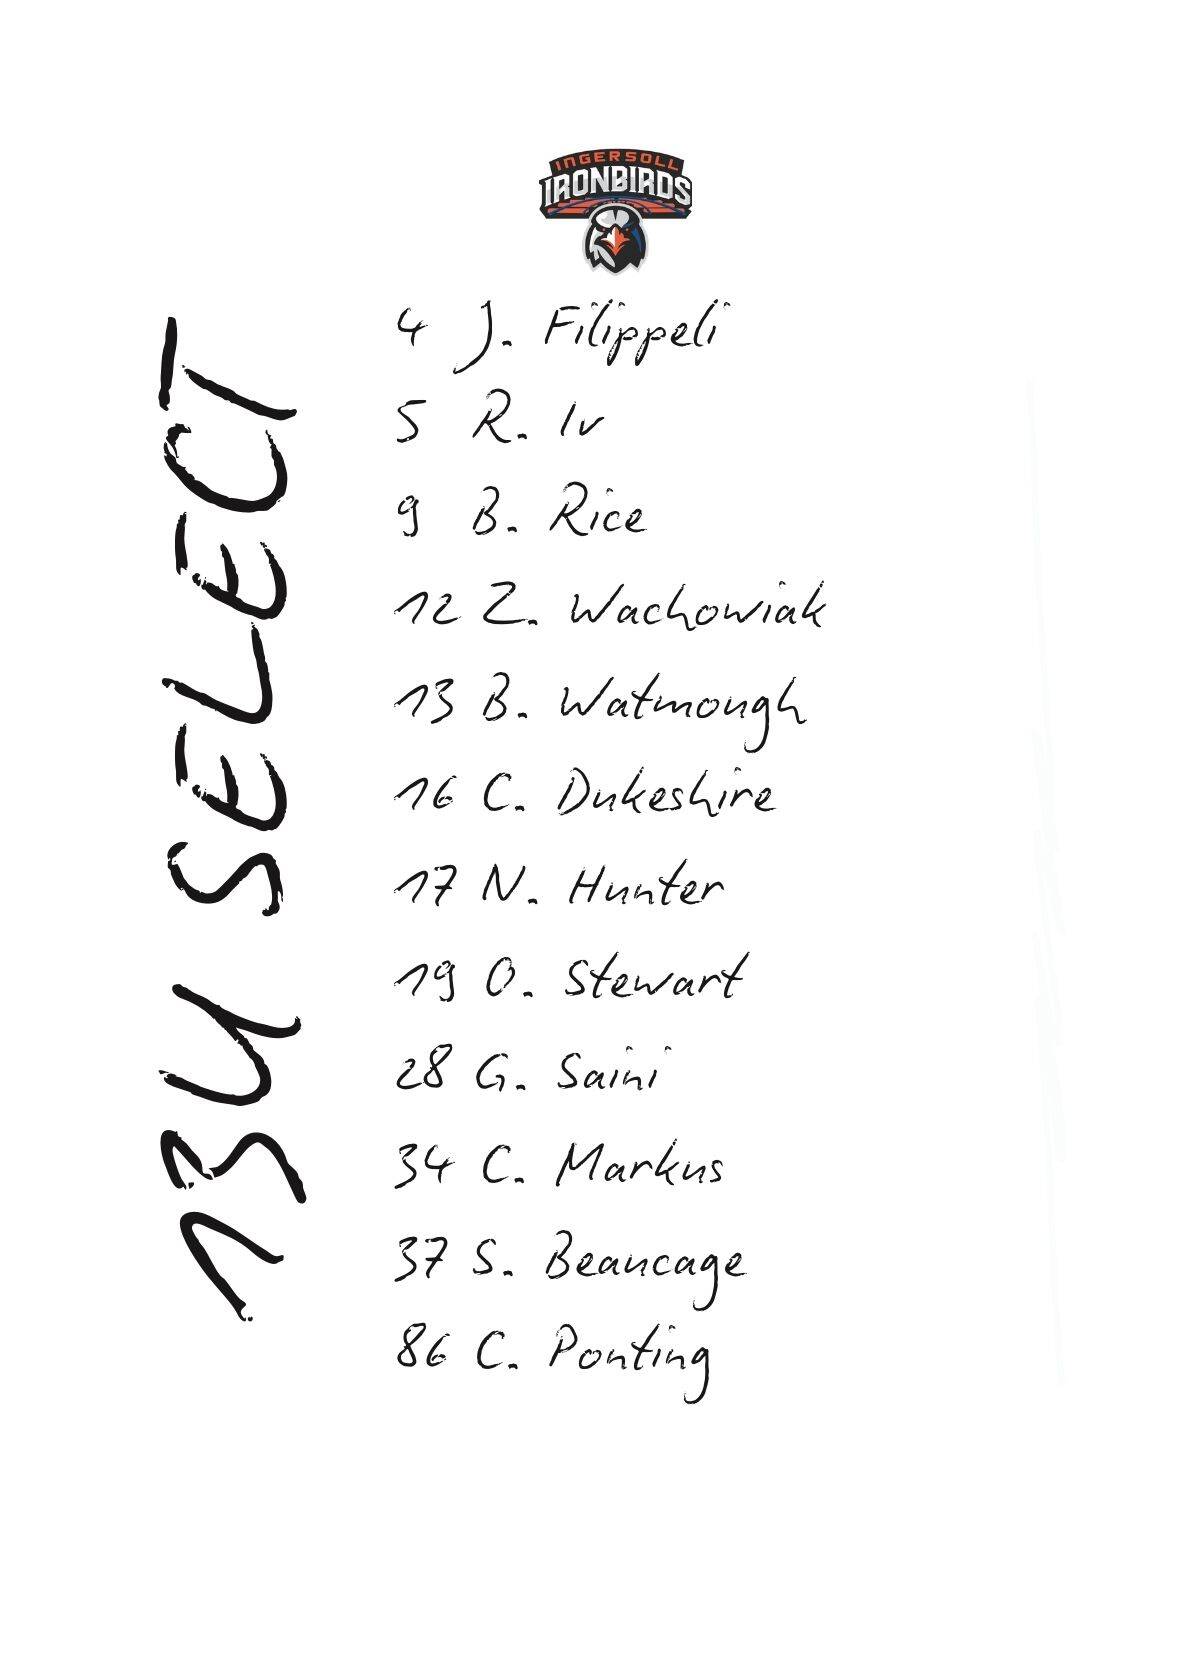 INGERSOLL
IRONBIRDS
13U SELECT
4 J. Filippeli
5 R. Iv
9 B. Rice
12 Z. Wachowiak
13 B. Watmough
16 C. Dukeshire
17 N. Hunter
19 O. Stewart
28 G. Saini
34 C. Markus
37 S. Beaucage
86 C. Ponting